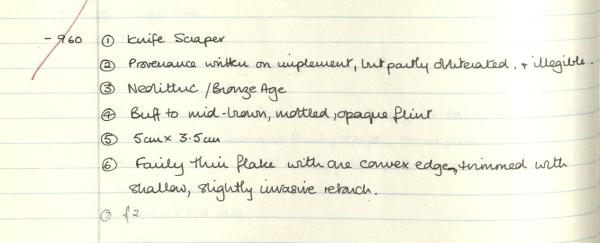 - 960 ① Knife Scraper
② Provenance written on implement, but partly obliterated, + illegible.
③ Neolithic / Bronze Age
④ Buff to mid-brown, mottled, opaque flint
⑤ 5cm x 3.5cm
⑥ Fairly thin flake with one convex edge, trimmed with
shallow, slightly invasive retouch.
⑦ £2